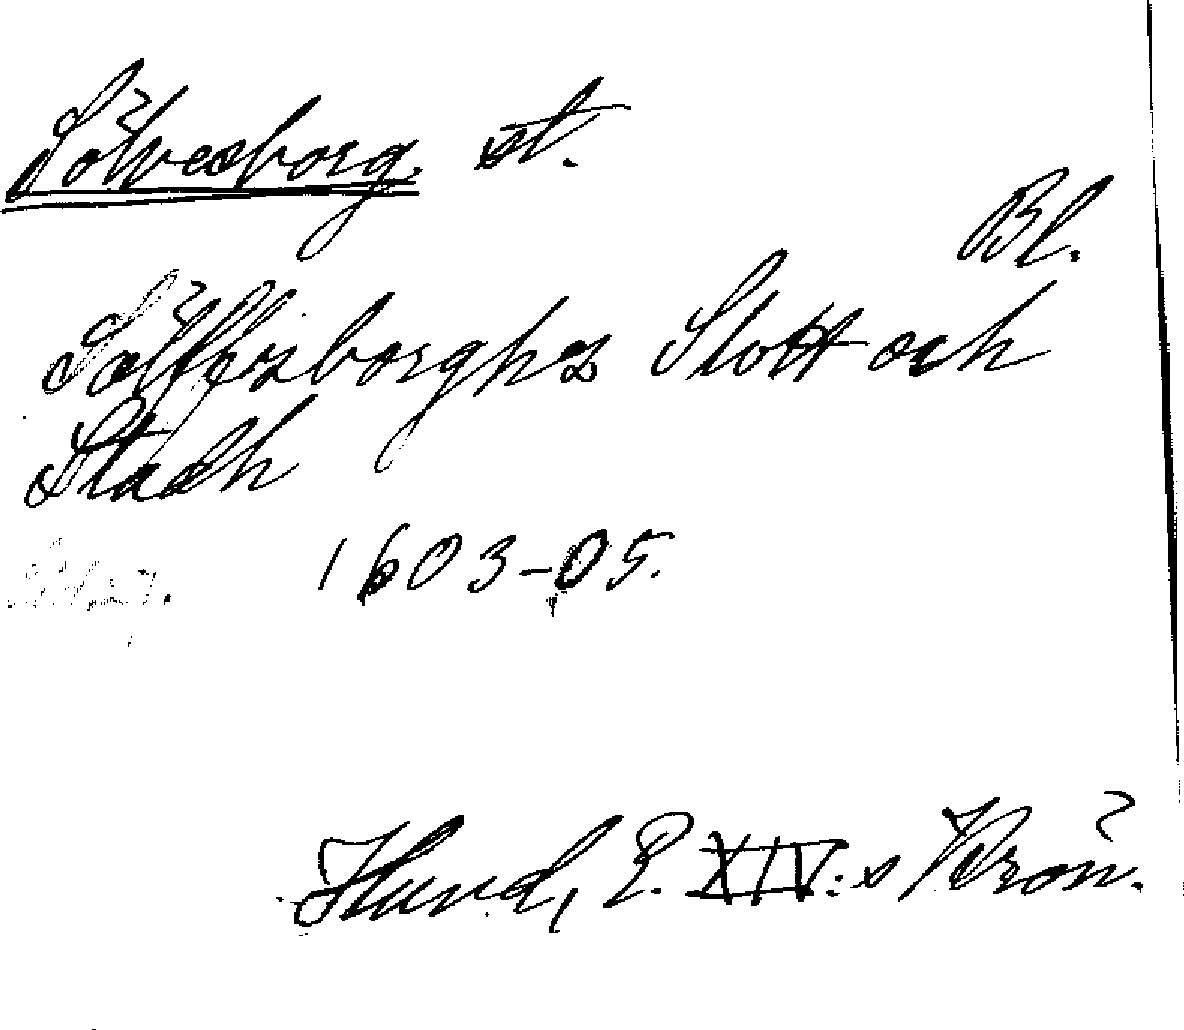 Sölvesborg. st.
Bl.
Sölffesborghs Slott och
Stadh
1603-05.
Hund, E. XIV:s Krön.